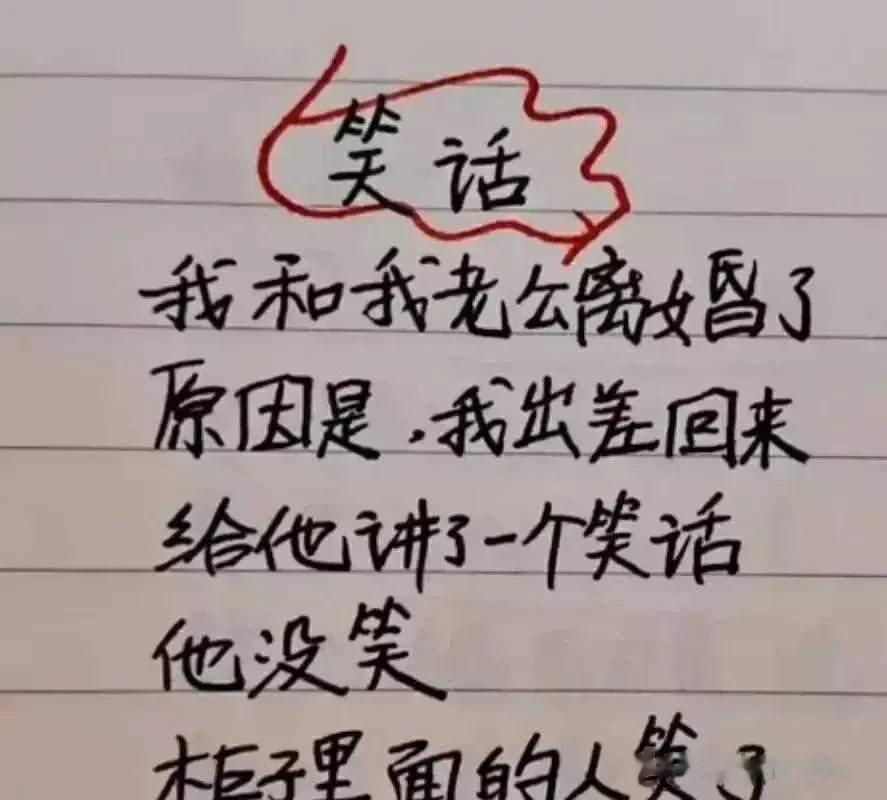 笑话
我和我老公离婚了
原因是,我出差回来
给他讲了一个笑话
他没笑
柜子里面的人笑了